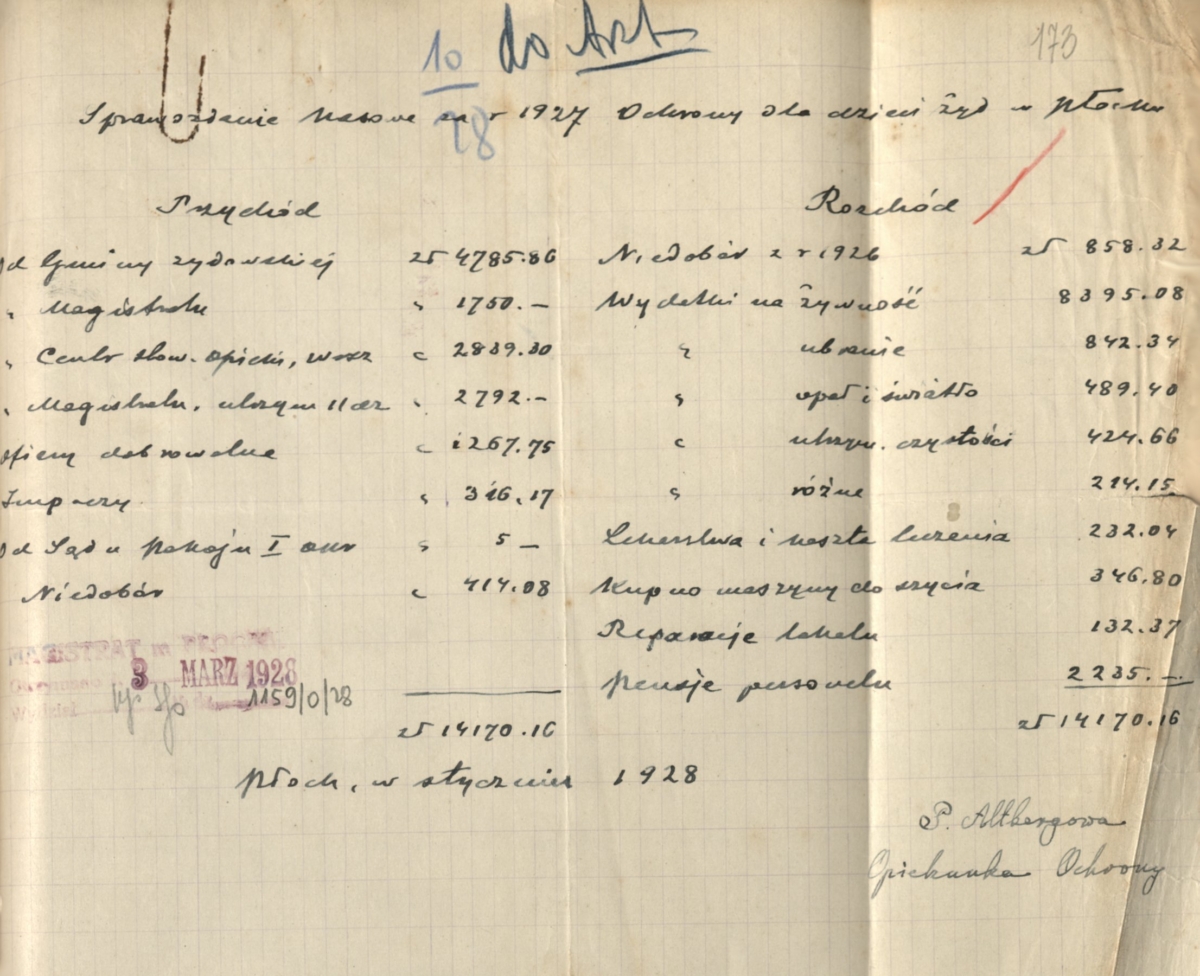 10 do Akt
28
173
Sprawozdanie kasowe za r 1927 Ochrony dla dzieci żyd w Płocku
Przychód
Od Gminy żydowskiej zł 4785.86
" Magistratu " 1750.—
" Centr stow. opieki, Warsz " 2839.30
" Magistratu, utrzym 11 dz " 2792.–
Ofiary dobrowolne " 1267.75
Imprezy " 316.17
Od Sądu Pokoju I okr " 5 —
Niedobór " 414.08
zł 14170.16
Rozchód
Niedobór z r 1926 zł 858.32
Wydatki na żywność 8395.08
" ubranie 842.34
" opał i światło 489.40
" utrzym. czystości 424.66
" różne 214.15
Lekarstwa i koszta leczenia 232.04
Kupno maszyny do szycia 346.80
Reparacje lokalu 132.37
Pensje personelu 2235.—
zł 14170.16
MAGISTRAT m. PŁOCKA
3 MARZ 1928
Wydział 1159/0/28
Płock, w styczniu 1928
P. Altbergowa
Opiekunka Ochrony